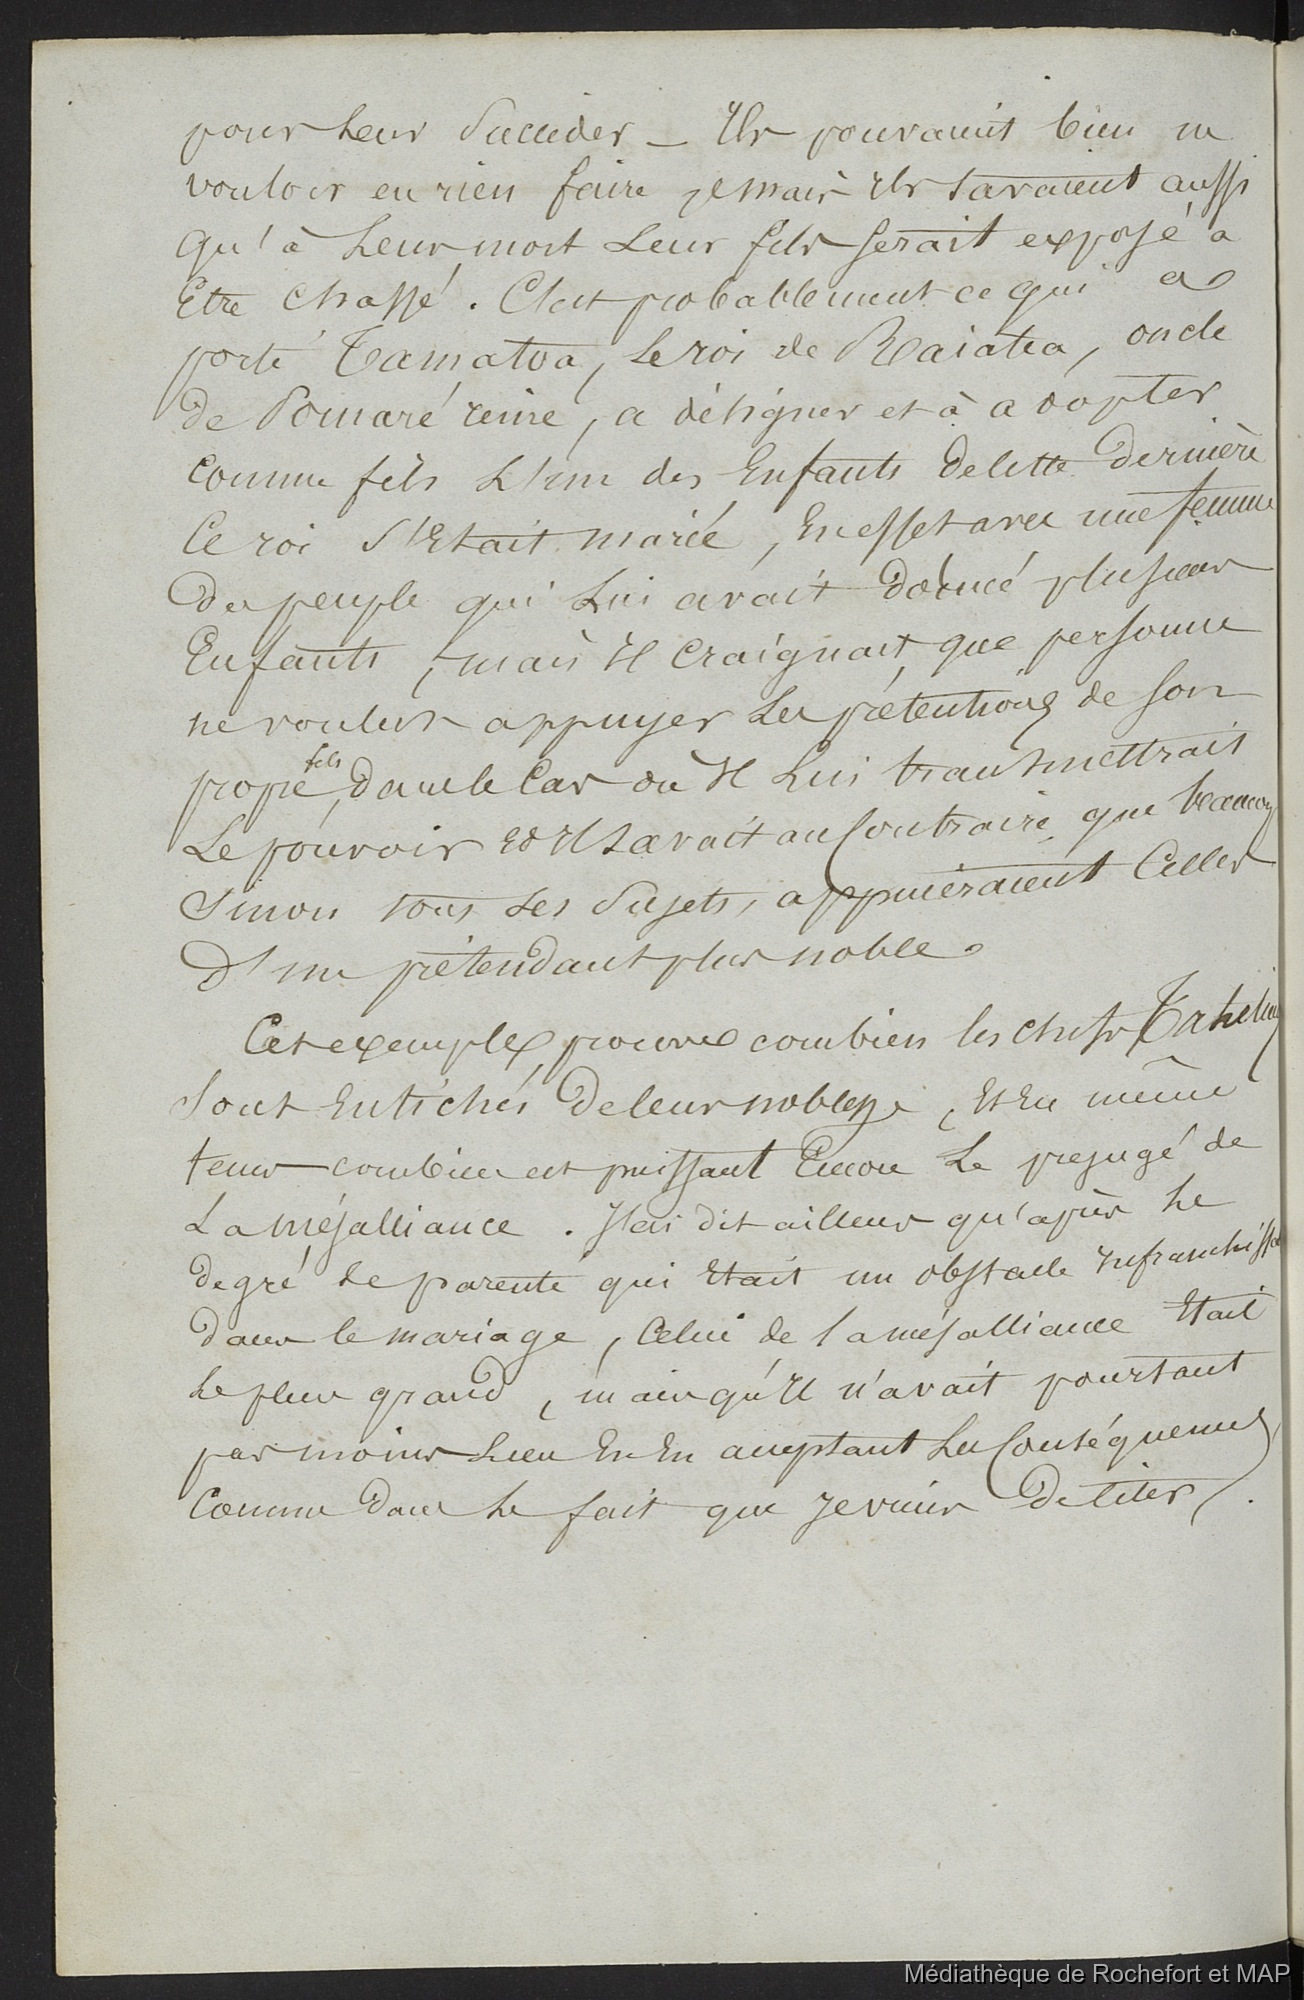 pour leur succéder _ Ils pouvaient bien ne
vouloir en rien faire, mais ils savaient aussi
qu'à leur mort leur fils serait exposé à
être chassé. C'est probablement ce qui a
porté Tamatoa, le roi de Raiatea, oncle
de Pomaré reine, a désigner et à adopter
comme fils l'un des enfants de cette dernière
Ce roi s'était marié, en effet avec une femme
du peuple qui lui avait donné plusieurs
enfants, mais il craignait que personne
ne voulut appuyer les prétentions de son
propre fils, dans le cas où il lui transmettrait
le pouvoir et il savait au contraire que beaucoup
sinon tous ses sujets, appuieraient celles
d'un prétendant plus noble.
Cet exemple prouve combien les chefs Tahitiens
sont entichés de leur noblesse, et en même
tems combien est puissant encore le préjugé de
la mésalliance. J'ai dit ailleurs qu'après le
degré de parenté qui était un obstacle infranchissa
dans le mariage, celui de la mésalliance était
le plus grand, mais qu'il n'avait pourtant
pas moins lieu en en acceptant les conséquences
comme dans le fait que je viens de citer.
Médiathèque de Rochefort et MAP